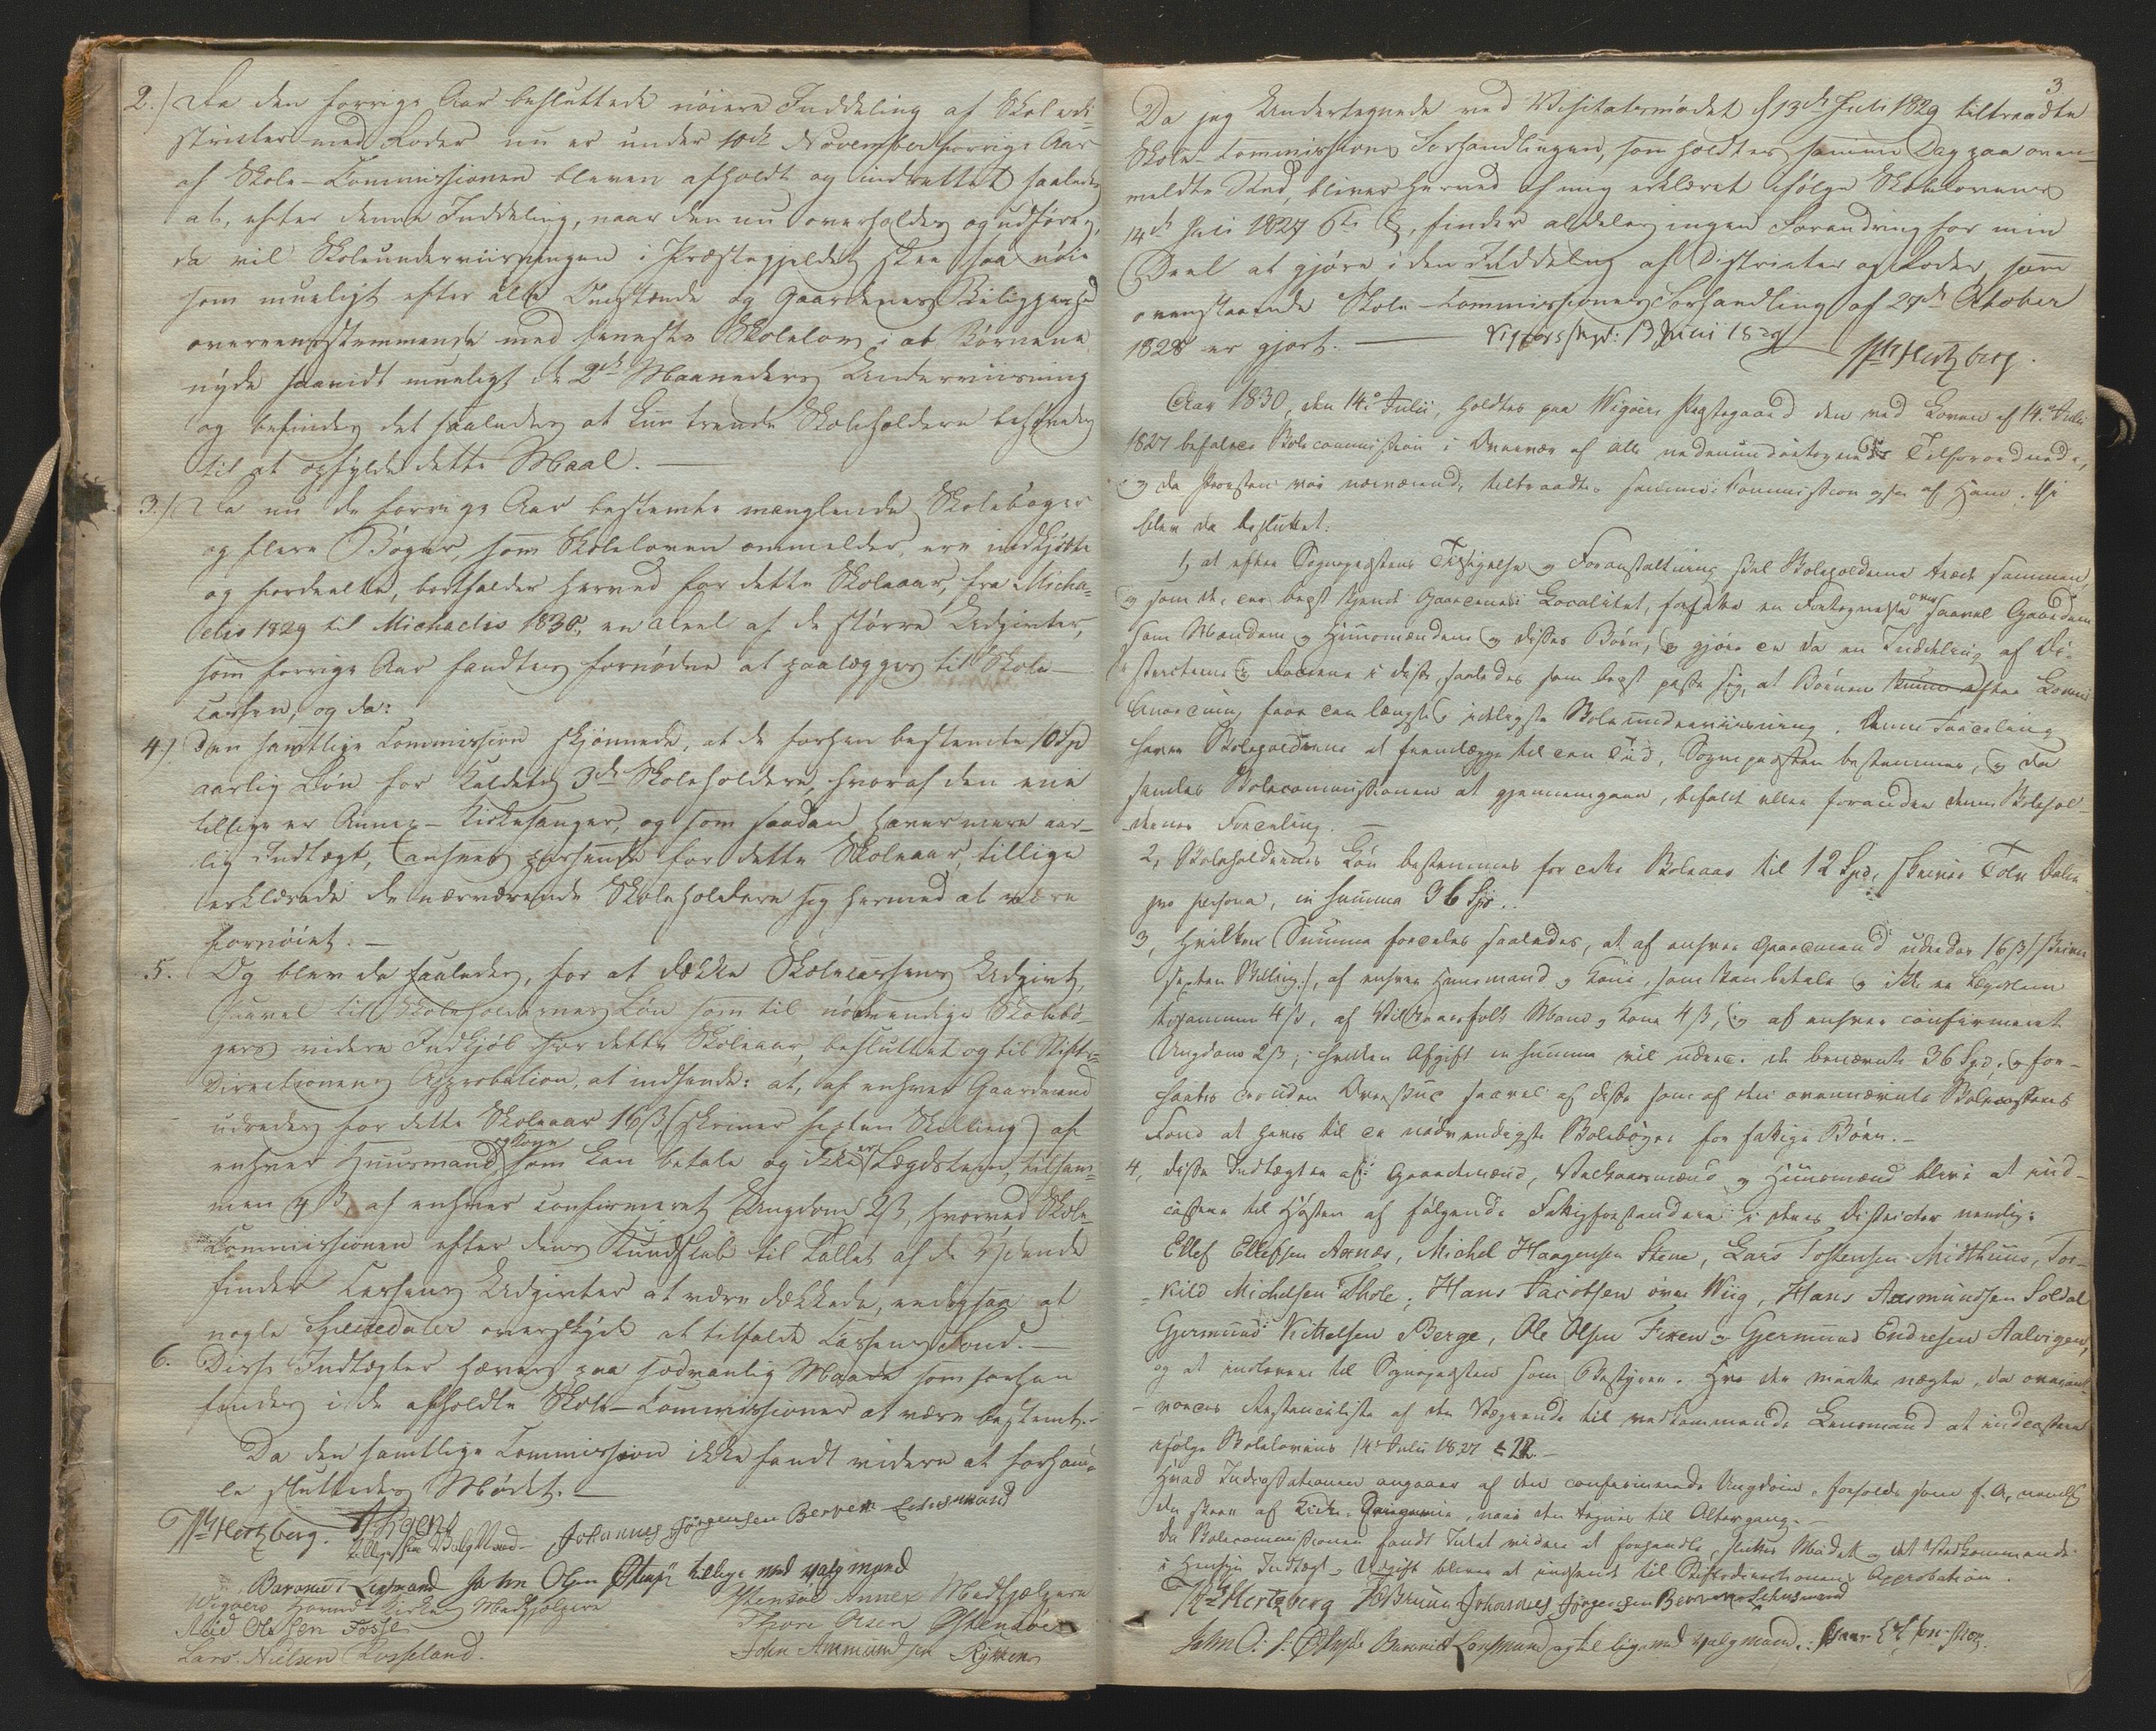 2.) Da den forrige Aar besluttede nöiere Inddeling af Skoledi-
stricter med Roder nu er under 10de November forrige Aar
af Skole-Commissionen bleven afholdt og indrettet saaledes
at, efter denne Inddeling, naar den nu overholdes og udföres,
da vil Skoleunderviisningen i Præstegjeldet skee saa nöie
som mueligt efter alle Omstænde og Gaardenes Beliggenhed
overeensstemmende med seneste Skolelov, i at Börnene
nyde saavidt mueligt de 2de Maaneders Underviisning
og befindes det saaledes at kun trende Skoleholdere behöves
til at opfylde dette Maal. —
3.) Da nu de forrige Aar bestemte manglende Skoleböger
og flere Böger, som Skoleloven ommelder, ere indkjöbte
og fordeelte, bortfalder herved for dette Skoleaar, fra Micha-
elis 1829 til Michaelis 1830, en Deel af de större Udgivter,
som forrige Aar fandtes fornödne at paalægges til Skole-
cassen, og da:
4.) Den samtlige Commission skjönnede, at de forhen bestemte 10 Spd
aarlig Lön for Kaldets 3de Skoleholdere, hvoraf den ene
tillige er Annex-Kirkesanger, og som saadan haver mere aar-
lig Indtægt, ansees passende for dette Skoleaar, tillige
erklærede de nærværende Skoleholdere sig hermed at være
fornöiet. —
5. Og blev da saaledes, for at dække Skolecassens Udgivt,
saavel til Skoleholdernes Lön som til nödvendige Skolebö-
gers videre Indkjöb for dette Skoleaar, besluttet og til Stifts-
Directionens Approbation, at indsende: at, af enhver Gaardmand
udredes for dette Skoleaar 16 ß, (skriver sexten Skilling) af
enhver Huusmand og Kone som kan betale og ikke er Lægdslem, tilsam-
men 4 ß, af enhver confirmeret Ungdom 2 ß, hvorved Skole-
Commissionen efter dens Kundskab til Tallet af de Ydende
finder Cassens Udgivter at være dækkede, endogsaa at
nogle Speciedaler overskyde at tilfalde Cassens Fond. —
6. Disse Indtægter hæves paa sædvanlig Maade som forhen
findes i de afholdte Skole-Commissioner at være bestemt. -
Da den samtlige Commission ikke fandt videre at forhand-
le sluttedes Mödet. —
Hertzberg. tillige som Valgmand- Johannes Jörgensen Berven Lehnsmand
Baronie Lensmand John Olsen tillige med valgmand
Wigøers Hoved Kirkes Medhjelpere Østensöe Annex Medhjælpere
Olsen Fosse Thore Østensöe
Lars Nielsen Rosseland. John Ammundsen Rykken
3
Da jeg Undertegnede ved Visitatsmødet d 13de Juli 1829 tiltraadte
Skole-Commissions Forhandlingen, som holdtes samme Dag paa oven-
meldte Sted, bliver herved af mig erklæret ifölge Skolelovens
14de Juli 1827 6te §, finder aldeles ingen Forandring for min
Deel at gjöre i den Inddeling af Districter og Roder, som
ovenstaaende Skole-Commissions Forhandling af 27de October
1828 er gjort. — 13 Juli 1829
Hertzberg.
Aar 1830, den 14de Julii, holdtes paa Wigöers Præstegaard den ved Loven af 14de Julii
1827 befalede Skolecommission i Overvær af alle nedenundertegnede Tilforordnede,
og da Provsten var nærværende, tiltraadtes samme Commission ogsaa af Ham. Og
blev da besluttet:
1, at efter Sognepræstens Tilsigelse og Foranstaltning skal Skoleholderne træde sammen,
og som de, der bedst kjende Gaardenes Localitet, forfatte en Fortegnelse over saavel Gaardene
som Mændene og Huusmændene og disses Börn, og gjöre da en Inddeling af Di-
stricterne og Roderne i disse, saaledes som bedst passe sig, at Börnene efter Lovens
Anordning faae den længste mueligste Skoleunderviisning. Denne Fordeling
haver Skoleholderne at fremlægge til den Tid, Sognepræsten bestemmer, og da
samles Skolecommissionen at gjennemgaae, befale eller forandre denne Skolehol-
dernes Fordeling. —
2, Skoleholdernes Lön bestemmes for dette Skoleaar til 12 Spd, skriver Tolv Daler
pro persona, in summa 36 Spd..
3, Hvilken Summa fordeles saaledes, at af enhver Gaardmand udredes 16 ß (skriver
sexten Skilling), af enhver Huusmand og Kone, som kan betale og ikke er Lægdslem
tilsammen 4 ß, af Vilkaarsfolk Mand og Kone 4 ß, og af enhver confirmeret
Ungdom 2 ß; hvilken Afgift in summa vil udrede de benævnte 36 Spd, og for-
haabes desuden Overskud saavel af disse som af den ovennævnte Skolecassens
Fond at haves til de nødvendigste Skoleböger for fattige Börn. -
4, Disse Indtægter af Gaardmænd, Vilkaarsmænd og Huusmænd bliver at ind-
cassere til Hösten af fölgende Fattigforstandere i deres Districter nemlig:
Ellef Ellefsen Axnæs, Michel Haagensen Steine, Lars Tostensen Mitthuus, Tor-
kild Michelsen Thole, Hans Jacobsen övre Wiig, Hans Aasmundsen Soldal
Gjermund Kittelsen Berge, Ole Olsen Fixen og Gjermund Endresen Aalvigen,
og at indlevere til Sognepræsten som Bestyrer. Hvo der maatte nægte, da overant-
vordes Restanceliste af den Vægrende til vedkommende Lensmand at indcassere
ifölge Skolelovens 14de Julii 1827 § 22. —
Hvad Indcassationen angaaer af den confirmerede Ungdom, forholdes som f. A, nemlig
den skeer af Sognepræsten, naar den tegnes til Altergang. —
Da Skolecommissionen fandt Intet videre at forhandle, sluttes Mödet og det Vedkommende
i Hensyn Indtægt og Udgift bliver at indsende til Stiftsdirectionens Approbation.
Hertzberg Bruun Johannes Jörgensen Berven Lehnsmand
John Baronie Lensmand og tillige med valgmand.